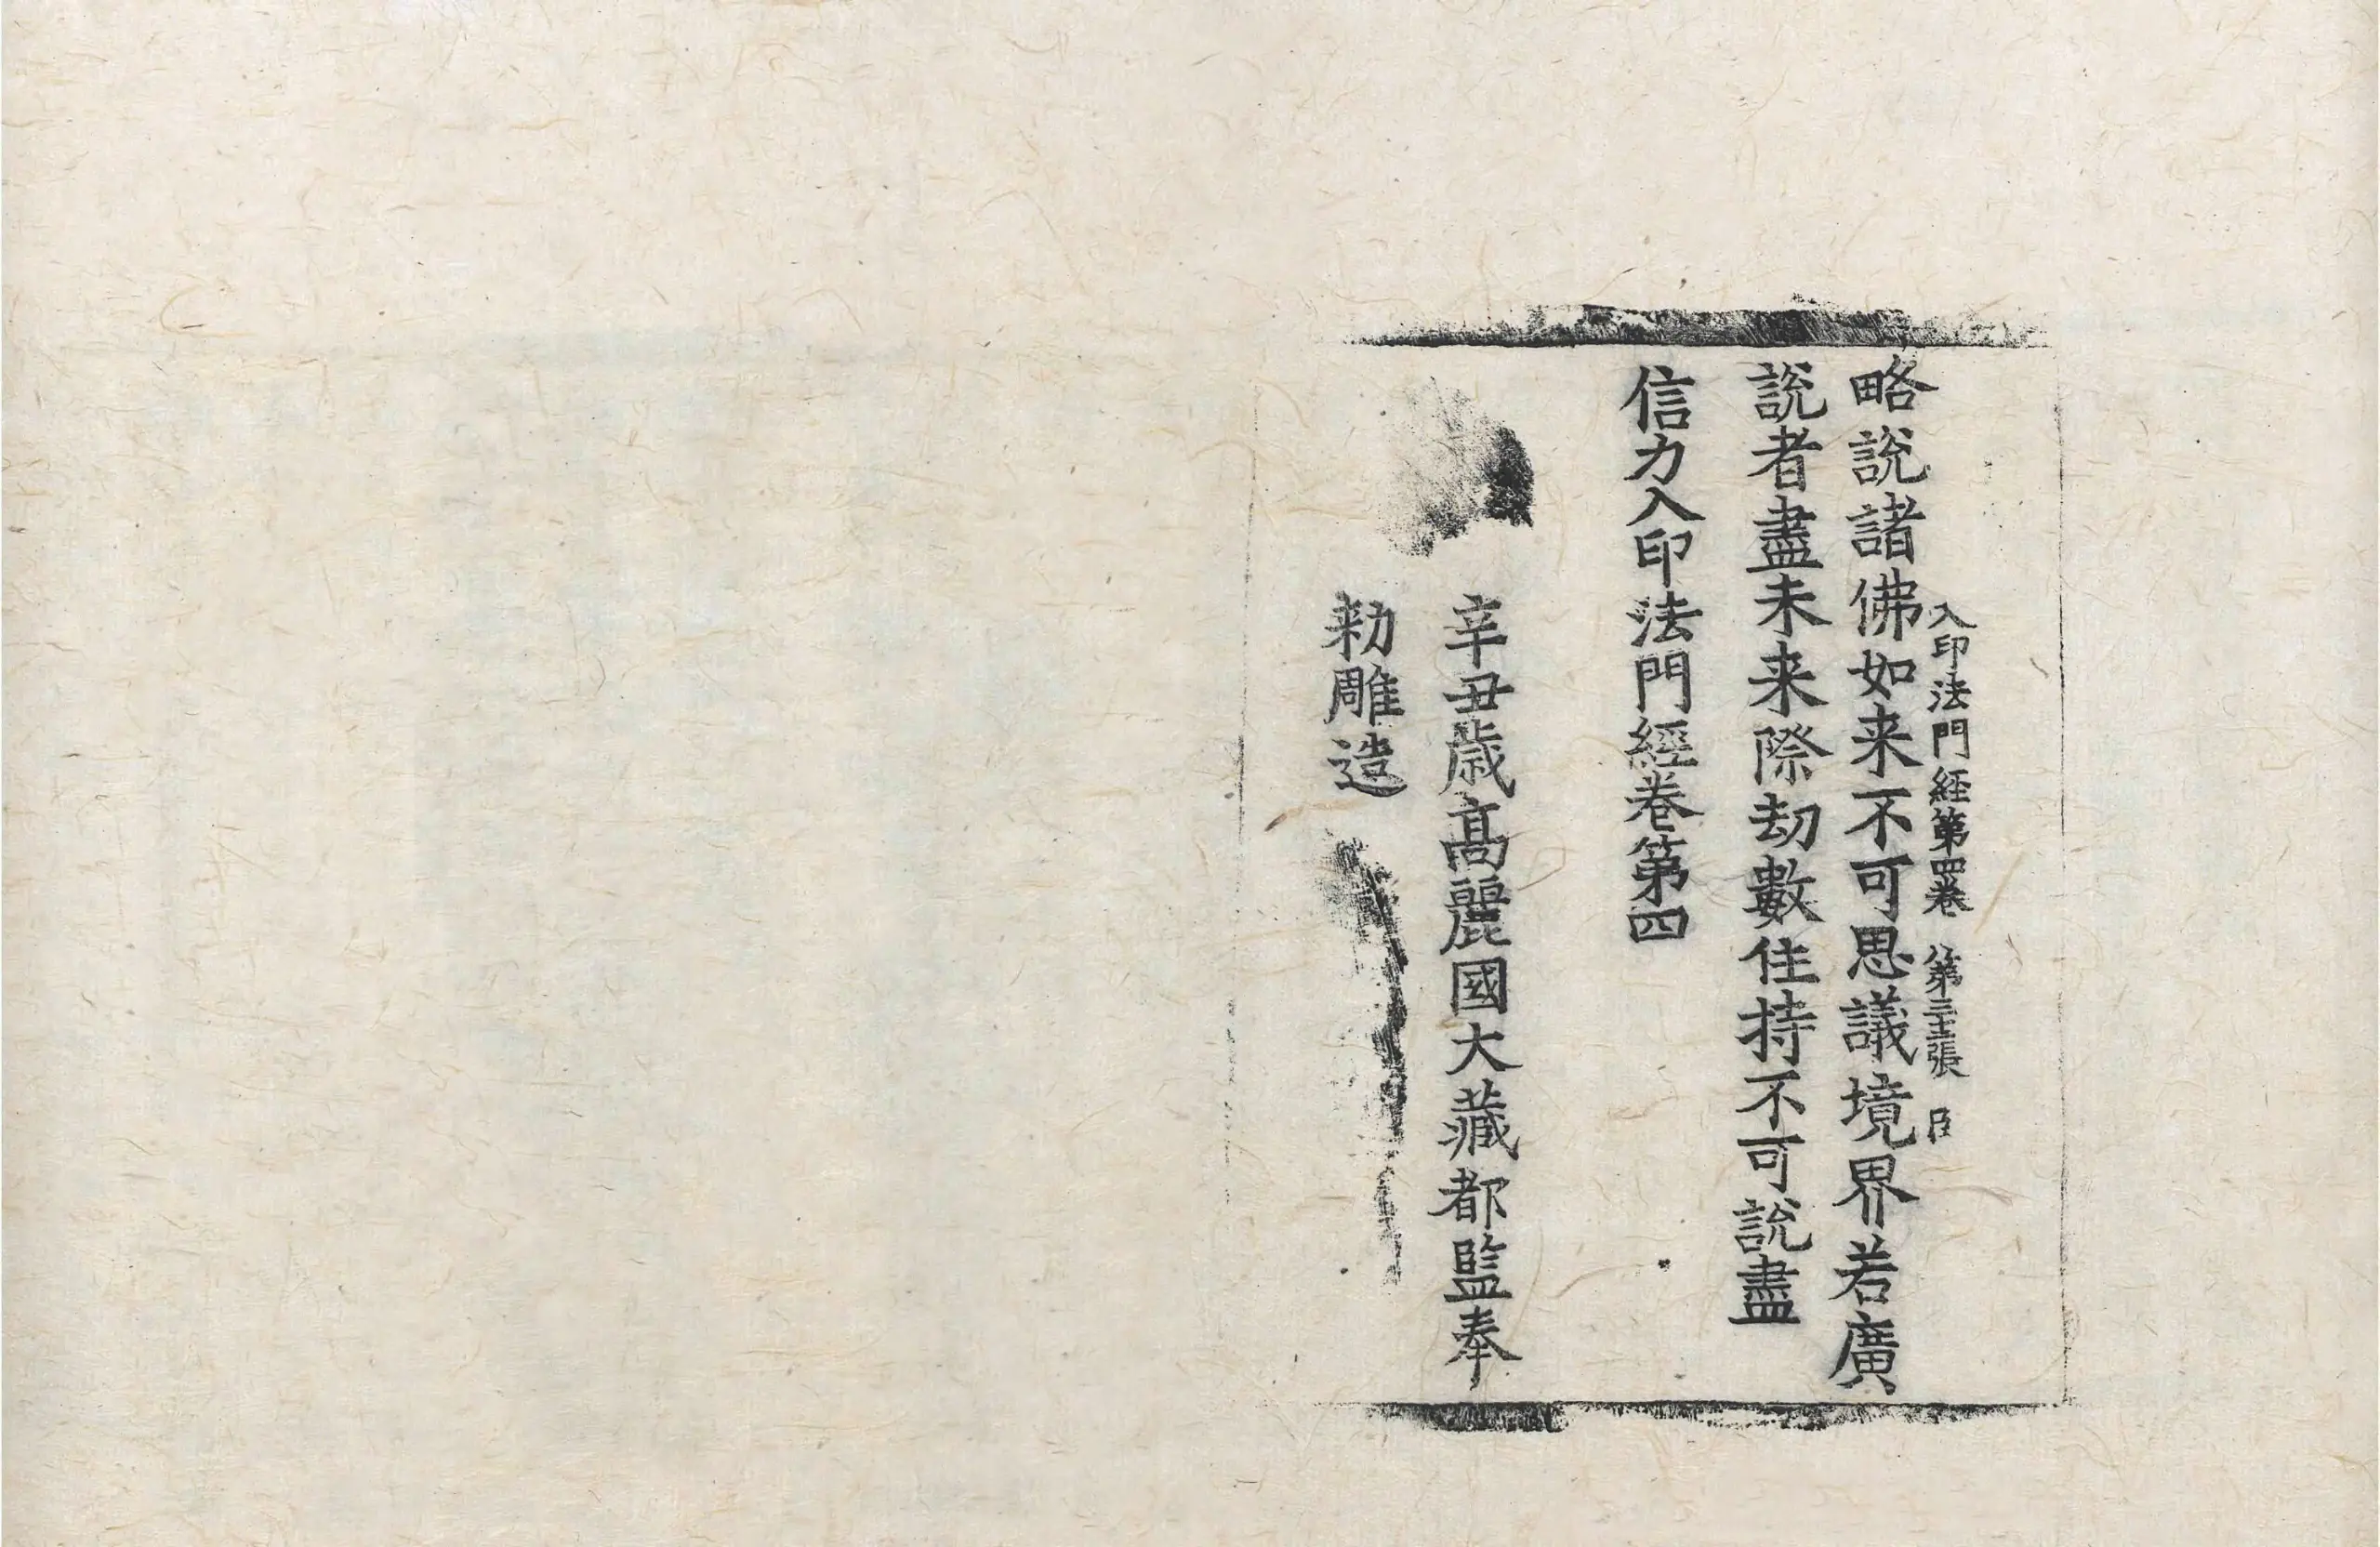 入印法門經第四卷 第三十三張 臣
略說諸佛如来不可思議境界若廣
說者盡未来際劫數住持不可說盡
信力入印法門經卷第四
辛丑歳髙麗國大藏都監奉
勑雕造